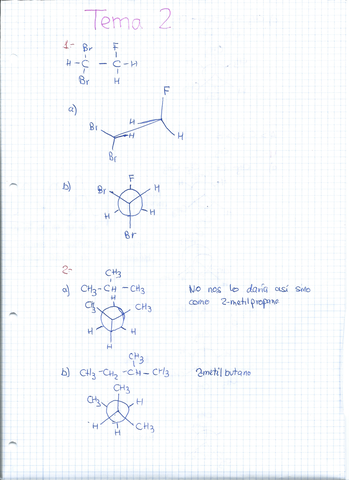 Tema 2
1-
Br F
H - C - C - H
Br H
a)
F
Br H
H H
Br
b)
F
Br H
H H
Br
2-
CH3
a) CH3 - CH - CH3 No nos lo daría así sino
como 2-metilpropano
H
CH3 CH3
H H
H
b)
CH3
CH3 - CH2 - CH - CH3 2metilbutano
CH3
CH3 H
H CH3
H